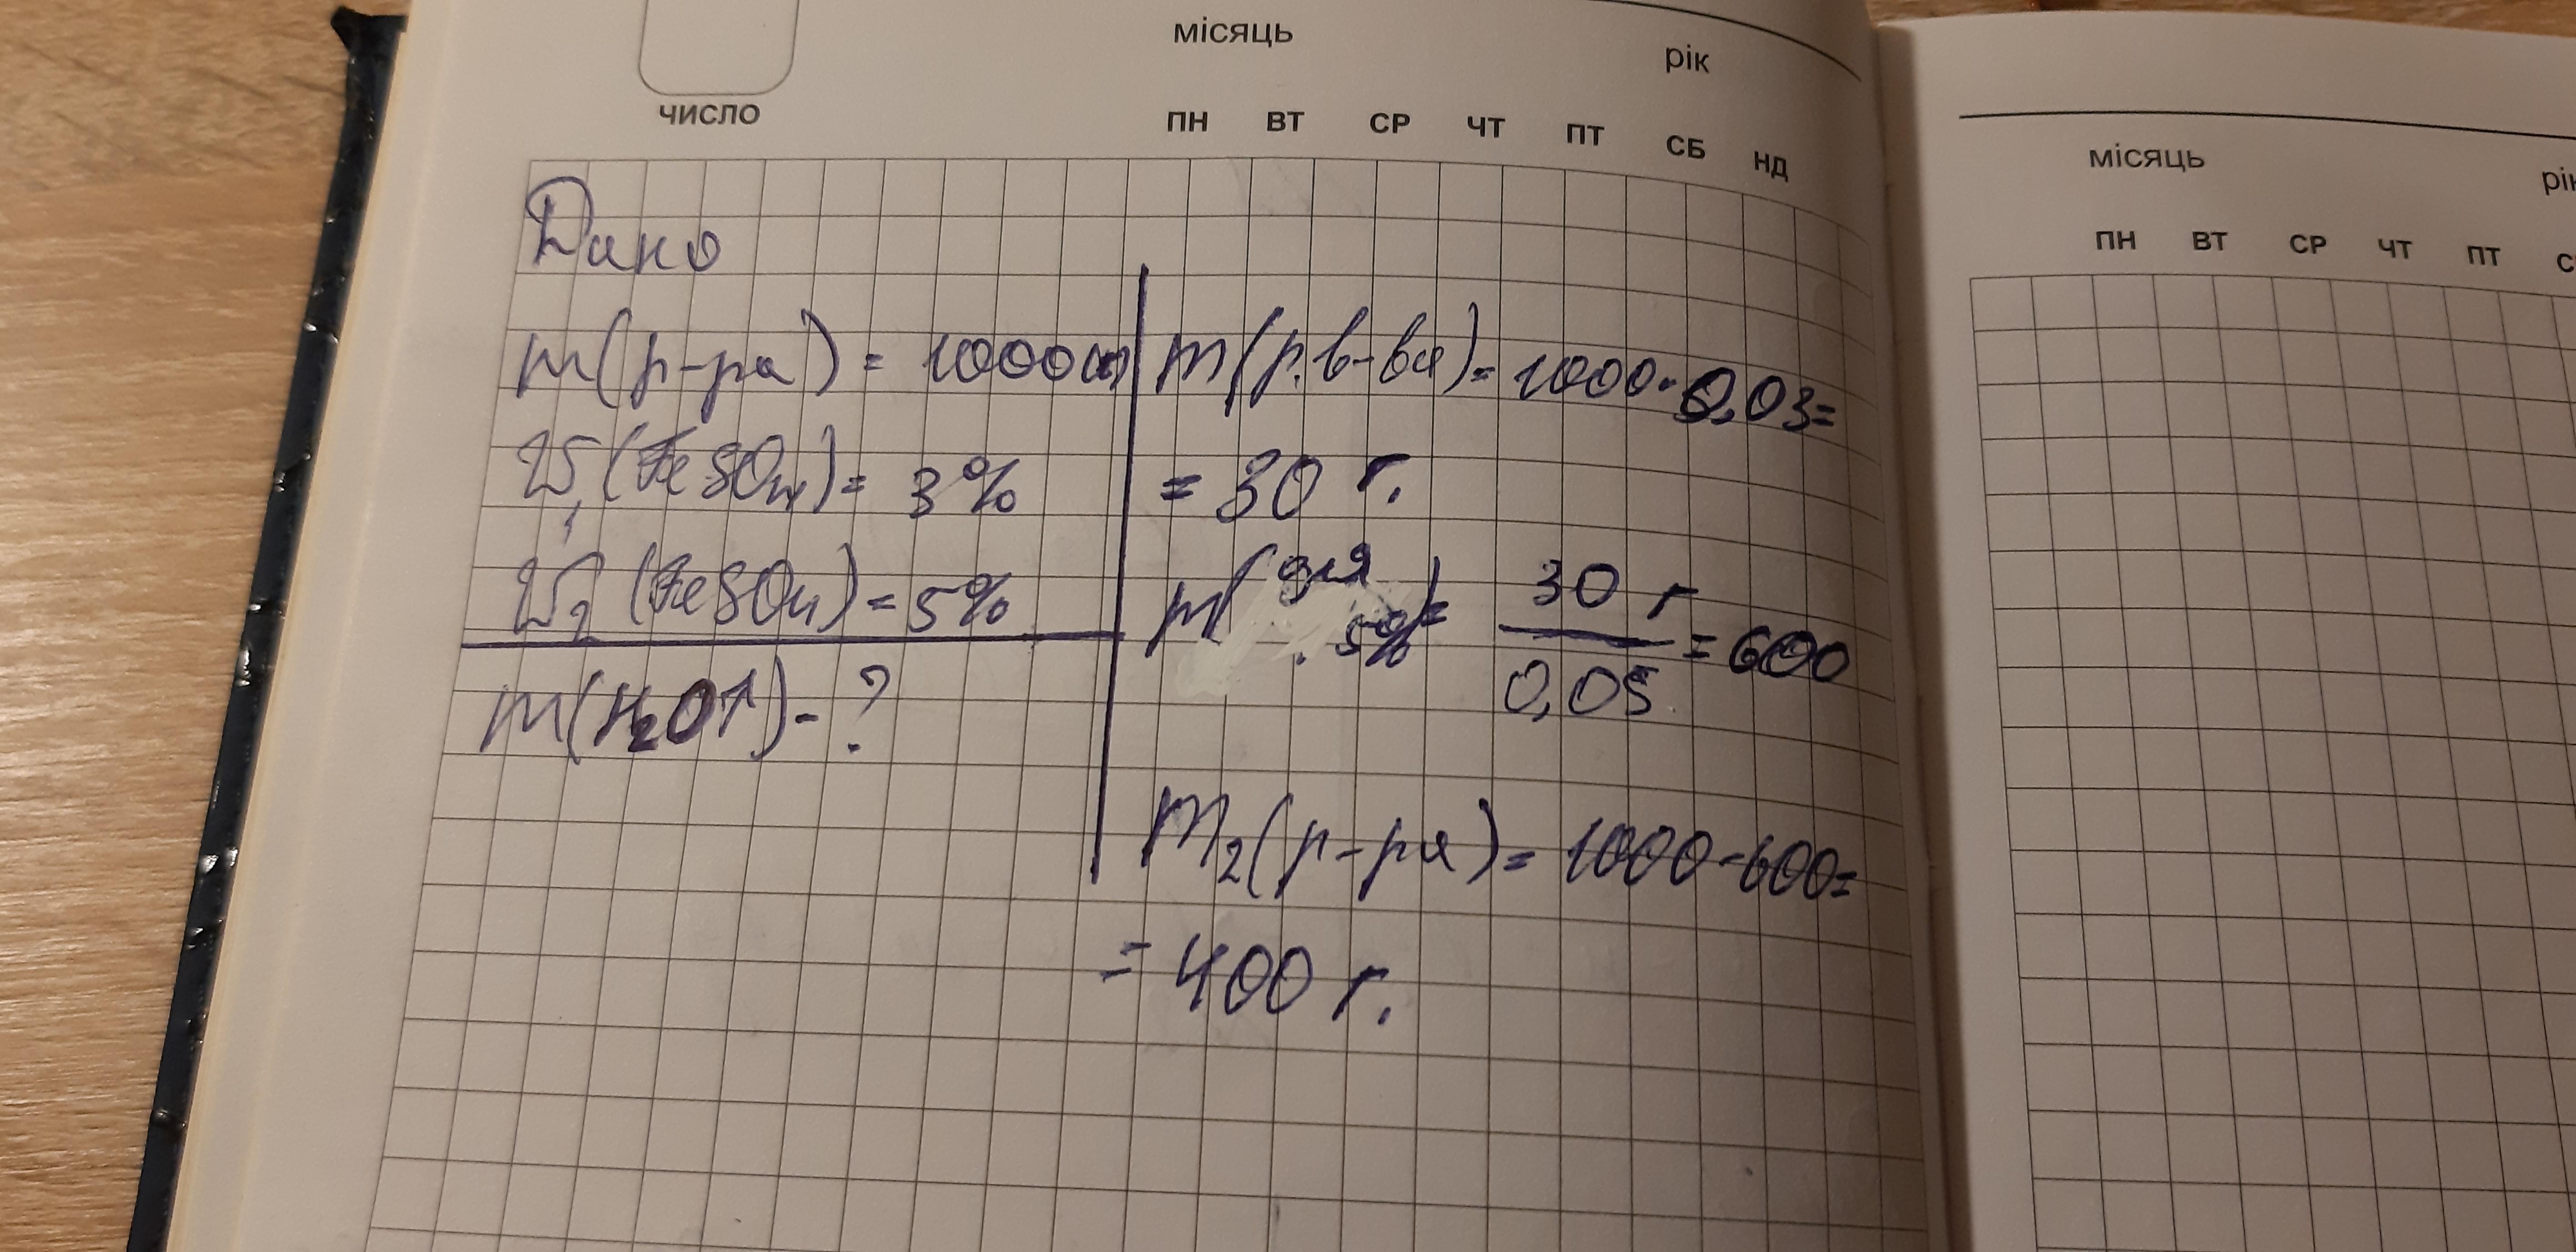 місяць
рік
число
ПН ВТ СР ЧТ ПТ СБ НД
Дано
m(р-ра) = 1000
W₁(FeSO₄) = 3%
W₂(FeSO₄) = 5%
m(H₂O↑) - ?
m(р.в-ва) = 1000 · 0,03 =
= 30 г.
m(для 5%) = 30 г / 0,05 = 600
m₂(р-ра) = 1000 - 600 =
= 400 г.
місяць
рік
ПН ВТ СР ЧТ ПТ